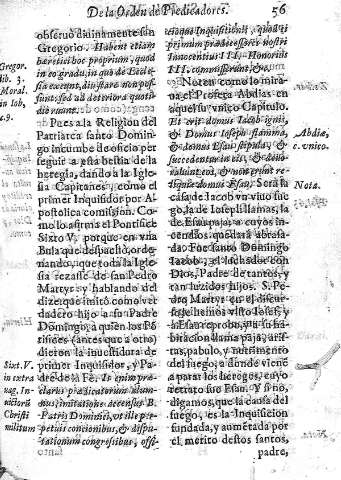 De la Orden de Predicadores. 56
obseruò diuinamente san
Gregorio. Habent etiam
hæretici hoc proprium, quod
in eo gradu, in quo de Eccle-
sia exeunt, diu stare non pos-
sunt: sed ad deteriora quoti-
die ruunt.
Pues a la Religion del
Patriarca santo Domin-
go incumbe de oficio per
seguir a esta bestia de la
heregia, dando a la Igle
sia Capitanes, como el
primer Inquisidor por A-
postolica comission. Co-
mo lo afirma el Pontifice
Sixto V. porque en vna
Bula que despachò, orde-
nando, que toda la Igle
sia rezasse de san Pedro
Martyr; y hablando del
dize que imitò como ver
dadero hijo a su Padre
Domingo, a quien los Pō
tifices (antes que a otro)
dieron la inuestidura de
primer Inquisidor, y Pa-
dre de la Fè. Is enim præ-
claris prædicatorum alum-
nus, imitatione accensus B.
Patris Dominici, vt ille per-
petuis concionibus, & dispu-
tationum congressibus, offi-
Gregor.
lib. 3.
Moral.
in Iob,
c.9.
Sixt. V.
in extra
uag. In-
uictorū
Christi
militum
cioque Inquisitionis, quod ei
primum prædecessores nostri
Innocentius III. & Honorius
III. commisserunt, &c.
Noten como lo mira-
ua el Profeta Abdias en
aquel su vnico Capitulo.
Et erit domus Iacob ignis,
& Domus Ioseph flamma,
& domus Esau stipula, &
succedentur in eis, & deuo-
rabunt eos, & non erunt re-
liquiæ domus Esau. Serà la
casa de Iacob vn viuo fue
go, la de Ioseph llamas, la
de Esau paja; a cuyos in-
cendios quedarà abrasa-
da. Fue santo Domingo
Iacob, el luchador con
Dios, Padre de tantos, y
tan luzidos hijos. S. Pe-
dro Martyr en el discur-
so le hemos visto Iosef, y
la
paja, aris-
tas, pabulo, y nutrimento
del fuego; a donde viene
a parar los hereges, cuyo
retrato fue Esau. Y si no,
digamos, que la casa del
fuego, es la Inquisicion
fundada, y aumētada por
el merito destos santos,
padre,
Abdiæ,
c. vnico.
Nota.